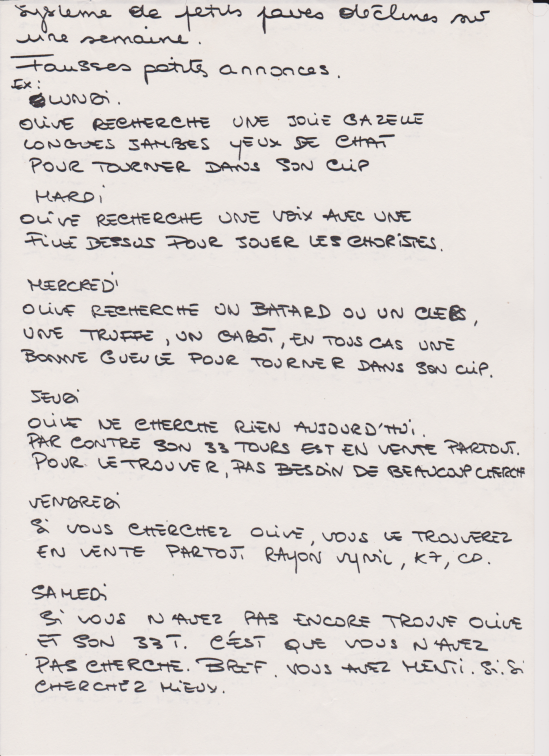 Système de petits pavés déclinés sur
une semaine.
Fausses petites annonces.
Ex:
LUNDI.
OLIVE RECHERCHE UNE JOLIE GAZELLE
LONGUES JAMBES YEUX DE CHAT
POUR TOURNER DANS SON CLIP
MARDI
OLIVE RECHERCHE UNE VOIX AVEC UNE
FILLE DESSUS POUR JOUER LES CHORISTES.
MERCREDI
OLIVE RECHERCHE UN BATARD OU UN CLEBS,
UNE TRUFFE, UN CABOT, EN TOUS CAS UNE
BONNE GUEULE POUR TOURNER DANS SON CLIP.
JEUDI
OLIVE NE CHERCHE RIEN AUJOURD'HUI.
PAR CONTRE SON 33 TOURS EST EN VENTE PARTOUT.
POUR LE TROUVER, PAS BESOIN DE BEAUCOUP CHERCH
VENDREDI
SI VOUS CHERCHEZ OLIVE, VOUS LE TROUVEREZ
EN VENTE PARTOUT. RAYON VYNIL, K7, CD.
SAMEDI
SI VOUS N'AVEZ PAS ENCORE TROUVE OLIVE
ET SON 33T. C'EST QUE VOUS N'AVEZ
PAS CHERCHE. BREF. VOUS AVEZ MENTI. SI. SI
CHERCHEZ MIEUX.